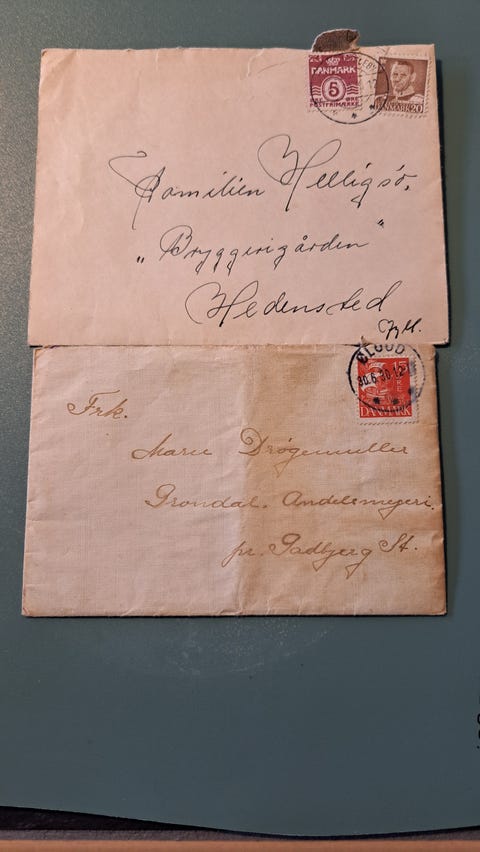 DANMARK
5
ØRE
POSTFRIMÆRKE
DANMARK 20
Familien Helligsø.
„Bryggerigården"
Hedensted
Jyll.
GLUD
30.6.30.12
15
ØRE
DANMARK
Frk.
Marie Drøgemuller
Grøndal. Andelsmejeri.
pr. Gadbjerg St.